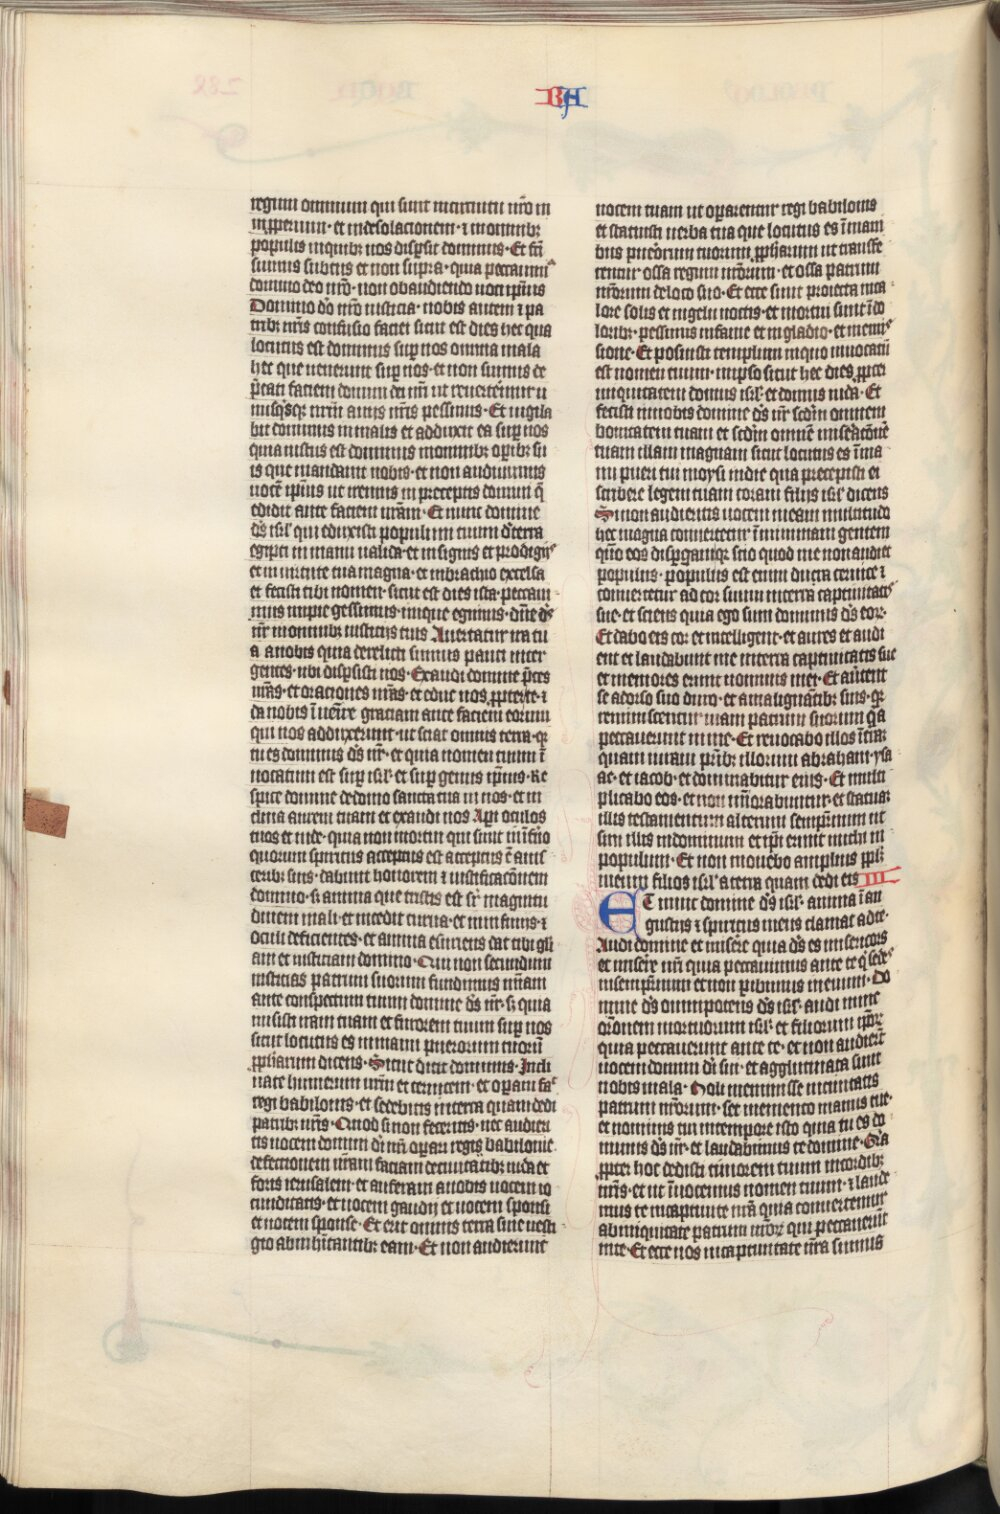 BA
regum omnium qui sunt in circuitu nr̄o in
inꝓperium · et in desolacionem · ⁊ in omnibꝫ
populis in quibꝫ nos disꝑsit dominus · Et fc̄i
sumus subtus et non supra · quia peccauimꝰ
domino deo nr̄o · non obaudiendo uoci ipsius
Domino dō nr̄o iusticia · nobis autem ⁊ pa
tribꝫ nr̄is confusio faciei sicut est dies hec qua
locutus est dominus suꝑ nos omnia mala
hec que uenerunt suꝑ nos · et non sumus de
p̄cati faciem domini dei nr̄i ut reuerteremur u
nusq̄sqꝫ nr̄m a uiis nr̄is pessimis · Et uigila
uit dominus in malis et adduxit ea suꝑ nos
quia iustus est dominus in omnibꝫ oꝑibꝫ su
is que mandauit nobis · et non audiuimus
uocē ipsius ut iremus in preceptis domini q̄
dedit ante faciem nr̄am · Et nunc domine
dꝰs isrl̄ qui eduxisti populum tuum de terra
egipti in manu ualida · et in signis et prodigijs
et in uirtute tua magna · et in brachio excelsa
et fecisti tibi nomen · sicut est dies ista · peccaui
mus impie gessimus · inique egimus · dn̄e ds̄
nr̄ in omnibꝫ iusticijs tuis Auertatur ira tu
a a nobis quia derelicti sumus pauci inter
gentes · ubi disꝑsisti nos · Exaudi domine p̄ces
nr̄as · et oraciones nr̄as · et educ nos ꝓpter te · ⁊
da nobis īuenire graciam ante faciem eorum
qui nos adduxerunt · ut sciat omnis terra · qꝛ
tu es dominus ds̄ nr̄ · et quia nomen tuum ī
uocatum est suꝑ isrl̄ · et suꝑ genus ipsius · Re
spice domine de domo sancta tua in nos · et in
clina aurem tuam et exaudi nos Aꝑi oculos
tuos et uide · quia non mortui qui sunt in īferno
quorum spiritus acceptus est a uis
ceribꝫ suis · dabunt honorem ⁊ iustificac̄onem
domino · si anima que tristis est sr̄ magnitu
dinem mali · et incedit curua · et infirma · ⁊
oculi deficientes · et anima esuriens dat tibi gl̄i
am et iusticiam domino · Quia non secundum
iusticias patrum nr̄orum fundimus mīam
ante conspectum tuum domine ds̄ nr̄ · s; quia
misisti iram tuam et furorem tuum suꝑ nos
sicut locutus es in manu puerorum tuorū
ꝓph̄arum dicens · Sicut dicit dominus · Incli
nate humerum ur̄m et ceruicem · et opam facite
regi babilonis · et sedebitis in terra quam dedi
patribꝫ ur̄is · Quod si non feceritis · nec audieri
tis uocem domini di nr̄i oꝑari regis babilonie
defectionem ur̄am faciam de ciuitatibꝫ iuda et
foris ierusalem · et auferam a uobis uocem io
cunditatis · et uocem gaudij et uocem sponsi
et uocem sponse · Et erit omnis terra sine uesti
gio ab inhītantibꝫ eam · Et non audierunt
uocem tuam ut oꝑarentur regi babilonis
et statuisti uerba tua que locutus es ī mani
bus puerorum tuorum ꝓph̄arum ut transfe
rentur ossa regum nr̄orum · et ossa patrum
nr̄orum de loco suo · Et ecce sunt proiecta in ca
lore solis et in gelu noctis · et mortui sunt ī do
loribꝫ · pessimis in fame et in gladio · et in emis
sione · Et posuisti templum in quo inuocatū
est nomen tuum · in ipso sicut hec dies ꝓpter
iniquitatem domus isrl̄ · et domus iuda · Et
fecisti in nobis domine ds̄ nr̄ scd̄m omnem
bonitatem tuam et scd̄m omnē miserac̄onē
tuam illam magnam sicut locutus es ī ma
nu pueri tui moysi in die qua precepisti ei
scribere legem tuam coram filijs isrl̄ dicens
Si non audieritis uocem meam multitudo
hec magna conuertetur ī minimam gentem
quo eos disꝑgamqꝫ scio quod me non audiet
populus · populus est enim dura ceruice ⁊
conuertetur ad cor suum in terra captiuitatis
sue · et scient quia ego sum dominus ds̄ eoꝝ
Et dabo eis cor et intelligent · et aures et audi
ent et laudabunt me in terra captiuitatis sue
et memores erunt nominis mei · Et auertent
se a dorso suo duro · et a malignitatibꝫ suis · qꝛ
reminiscentur uiam patrum suorum q̄a
peccauerunt in me · Et reuocabo illos ī terrā
quam iuraui pr̄ibꝫ illorum abraham · ysa
ac · et iacob · et dominabitur eius · Et multi
plicabo eos · et non minorabuntur · et statuā
illis testamentum alterum sempiternum ut
sim illis in dominum et ipsi erunt michi in
populum · Et non mouebo amplius ppl̄m
meum filios isrl̄ a terra quam dedi eis III
Et nunc domine ds̄ isrl̄ · anima ī an
gustijs ⁊ spiritus meus clamat ad te ·
Audi domine et misere quia ds̄ es misericors
et misere nr̄i quia peccauimus ante te q̄ sedes
in sempiternum et non ꝑibimus in euum · Do
mine ds̄ omnipotens ds̄ isrl̄ · audi nunc
or̄onem mortuorum isrl̄ · et filiorum ip̄oꝝ
quia peccauerunt ante te · et non audierūt
uocem domini di sui · et agglutinata sunt
nobis mala · Noli meminisse iniquitatis
patrum nr̄orum · set memento manus tue ·
et nominis tui in tempore isto quia tu es do
minus ds̄ nr̄ · et laudabimus te domine · Q̄a
ꝓpter hoc dedisti timorem tuum in cordibꝫ
nr̄is · et ut īuocemus nomen tuum · ⁊ laude
mus te in captiuite nr̄a quia conuertemur
ab iniquitate patrum nr̄oꝝ qui peccauerūt
in te · Et ecce nos in captiuitate nr̄a sumus